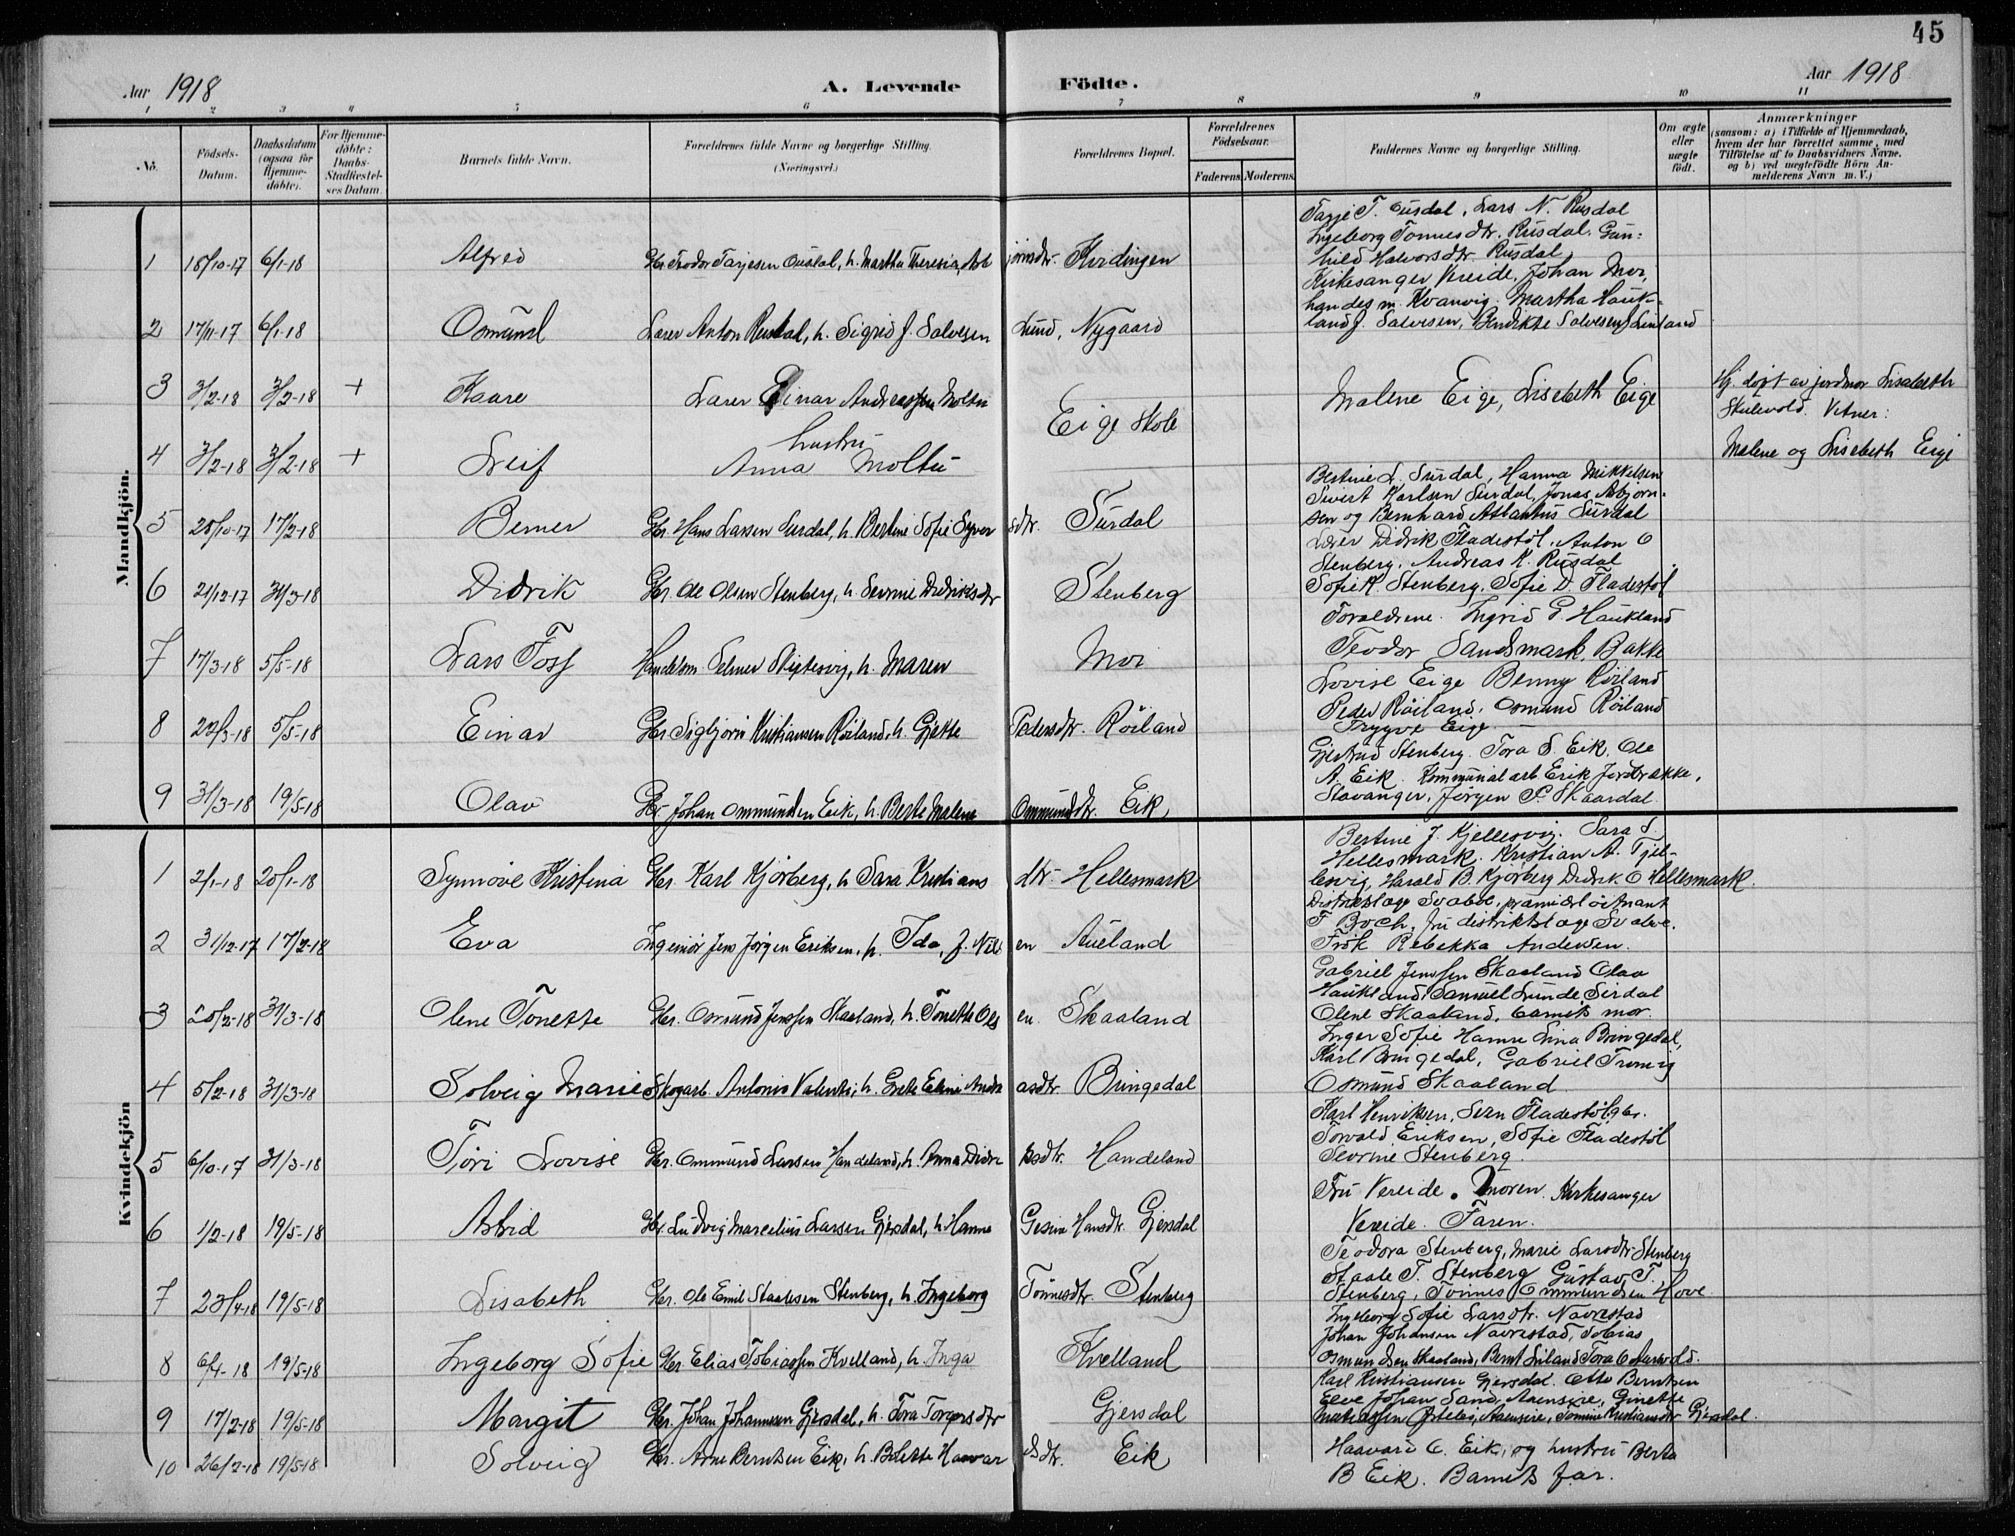 45
Aar 1918
A. Levende Födte.
Aar 1918
1 2 3 4 5 6 7 8 9 10 11
No.
Födsels-Datum.
Daabsdatum (ogsaa for Hjemme-döbte).
For Hjemme-döbte: Daabs-Stadfæstel-ses Datum.
Barnets fulde Navn.
Forældrenes fulde Navne og borgerlige Stilling. (Næringsvei.)
Forældrenes Bopæl.
Forældrenes Födselsaar.
Faderens. Moderens.
Faddernes Navne og borgerlige Stilling.
Om ægte eller uægte födt.
Anmærkninger
(saasom: a) i Tilfælde af Hjemmedaab, hvem der har forrettet samme, med Tilföielse af to Daabsvidners Navne. og b) ved uægtefödte Börn An-melderens Navn m. V.)
Mandkjön.
1 18/10-17 6/1-18 Alfred Gbr. Teodor Tarjesen Ousdal, h. Martha Theresia Asb jörnsdtr. Kvidingen
Tarje T. Ousdal, Lars N. Rusdal
Ingeborg Tonnesdtr. Rusdal. Gun-
hild Halvorsdtr. Rusdal
2 17/11-17 6/1-18 Osmund Lærer Anton Rusdal, h. Sigrid f. Salvesen Lund, Nygaard
Kirkesanger Vereide, Johan Moi,
handelsm. Kvanvig. Martha Hauk-
land f. Salvesen, Bendikte Salvesen Lunland
3 3/2-18 3/2-18 + Kaare Lærer Einar Andreassen Moltu
Eige Skole
Malene Eige, Lisebeth Eige
Hj. döpt av jordmor Lisabeth
Skulevold. Vitner:
Malene og Lisebeth Eige
4 3/2-18 3/2-18 + Leif hustru
Anna Moltu
5 28/10-17 17/2-18 Berner Gbr. Hans Larsen Surdal, h. Bertine Sofie Syver sdtr. Surdal
Bertine L. Surdal, Hanna Mikkelsen
Sivert Karlsen Surdal, Jonas Asbjorn-
sen og Bernhard Atlantus Surdal
6 21/12-17 31/3-18 Didrik Gbr. Ole Olsen Stenberg, h. Severine Didriksdtr Stenberg
Lærer Didrik Fladestöl. Anton O
Stenberg, Andreas K. Rusdal
Sofie K. Stenberg. Sofie D. Fladestöl
7 17/3-18 5/5-18 Lars Foss Handelsm. Selmer Sliptesvig, h. Maren Moi
Foraldrene. Ingrid G. Haukland
Teodor Sandsmark, Bakke
8 22/3-18 5/5-18 Einar Gbr Sigbjörn Kristiansen Röiland, h. Gjette Pedersdtr. Röiland
Lovise Eige Benny Röiland
Peder Röiland, Osmund Röiland
Trygve Eige
9 31/3-18 19/5-18 Olav Gbr. Johan Ommundsen Eik, h. Berte Malene Ommundsdtr. Eik,
Gjertrud Stenberg. Tora S. Eik. Ole
A. Eik. Kommunalarb Erik Jordbrække,
Stavanger, Jörgen P. Skaardal
Kvindekjön
1 2/1-18 20/1-18 Synnöve Kristina Gbr. Karl Kjörberg, h. Sara Kristians dtr. Hellesmark
Bertine J. Kjellesvig. Sara S.
Hellesmark. Kristian A. Tjel-
lesvig, Harald B. Kjörberg Didrik O Hellesmark.
2 31/12-17 17/2-18 Eva Ingeniör Jens Jörgen Eriksen, h. Ida, f. Nils en Aueland
Distriktslæge Svalve, premierlöitnant
F. Boch, fru distriktslæge Svalve.
Frök Rebekka Andersen.
3 20/2-18 31/3-18 Olene Tonette Gbr. Osmund Jenssen Skaaland, h. Tonette Ols en. Skaaland
Gabriel Jenssen Skaaland Olav
Haukland, Samuel Lunde, Sirdal
Olene Skaaland, barnets mor.
4 5/2-18 31/3-18 Solveig Marie Skogarb. Antonis Valenti, h. Grete Eline Andre asdtr. Bringedal
Inger Sofie Hamre Lina Bringedal,
Karl Bringedal, Gabriel Tronvig
Osmund Skaaland
5 6/10-17 31/3-18 Töri Lovise Gbr. Ommund Larsen Handeland, h. Anna Didri ksdtr. Handeland
Karl Henriksen, Sven Fladestöl, gbr.
Torvald Eriksen, Sofie Fladestöl
Severine Stenberg.
6 1/2-18 19/5-18 Astrid Gbr. Ludvig Marcelius Larsen Gjersdal, h. Hanna Gesine Hansdtr. Gjersdal
Fru Vereide. Moren. Kirkesanger
Vereide. Faren.
7 23/4-18 19/5-18 Lisabeth Gbr. Ole Emil Staalesen Stenberg, h. Ingeborg Tönnesdtr. Stenberg
Teodora Stenberg, Marie Larsdtr. Stenberg
Staale T. Stenberg Gustav T.
Stenberg, Tönnes Ommundsen Hove
8 6/4-18 19/5-18 Ingeborg Sofie Gbr Elias Tobiassen Kvelland, h. Inga Kvelland
Ingeborg Sofie Larsdtr. Navrestad
Johan Johansen Navrestad, Tobias
Osmundsen Skaaland, Bernt Liland Tora Osterhold.
9 17/2-18 19/5-18 Margit Gbr. Johan Johannesen Gjersdal, h. Tora Torgersdtr Gjersdal
Karl Kristiansen Gjersdal. Otto Berntsen
Elve Johan Sand, Aaensire, Ginette
Mathiassen Östebö, Aaensire, Tomine Kristiansdtr Gjersdal.
10 26/2-18 19/5-18 Solveig Gbr. Arne Berntsen Eik, h. Bolette Haavar dsdtr. Eik
Haavard O. Eik, og hustru Berta
B Eik. Barnets far.